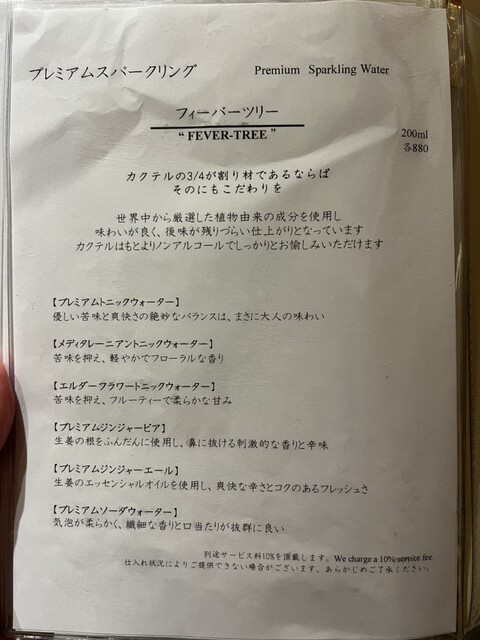 プレミアムスパークリング Premium Sparkling Water
フィーバーツリー
“ FEVER-TREE ”
200ml
各880
カクテルの3/4が割り材であるならば
そのにもこだわりを
世界中から厳選した植物由来の成分を使用し
味わいが良く、後味が残りづらい仕上がりとなっています
カクテルはもとよりノンアルコールでしっかりとお愉しみいただけます
【プレミアムトニックウォーター】
優しい苦味と爽快さの絶妙なバランスは、まさに大人の味わい
【メディタレーニアントニックウォーター】
苦味を抑え、軽やかでフローラルな香り
【エルダーフラワートニックウォーター】
苦味を抑え、フルーティーで柔らかな甘み
【プレミアムジンジャービア】
生姜の根をふんだんに使用し、鼻に抜ける刺激的な香りと辛味
【プレミアムジンジャーエール】
生姜のエッセンシャルオイルを使用し、爽快な辛さとコクのあるフレッシュさ
【プレミアムソーダウォーター】
気泡が柔らかく、繊細な香りと口当たりが抜群に良い
別途サービス料10%を頂戴します。We charge a 10% service fee.
仕入れ状況によりご提供できない場合がございます、あらかじめご了承ください。